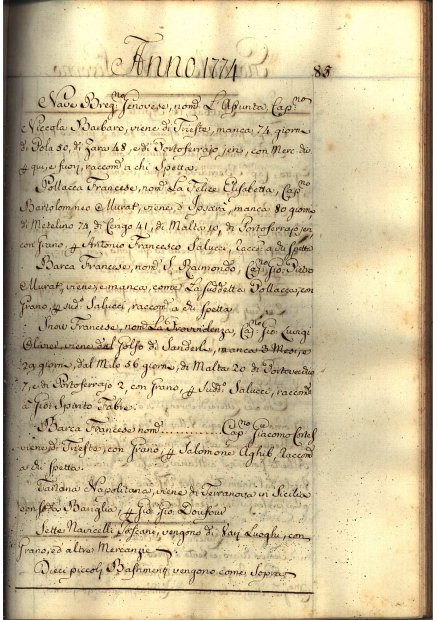 Anno 1774
83
Nave Breg.no Genovese, nom.o L'Assunta Cap.no
Niccola Barbaro, viene di Trieste, manca 74 giorni
di Pola 50, di Zara 48, e di Portoferrajo jeri, con Merc. di
qui, e fuori, raccom.a a chi Spetta.
Pollacca Francese, nom.a La Felice Elisabetta, Cap.no
Bartolommeo Murat, viene d'Ipsarà, manca 80 giorni
di Metelino 74 di Cerigo 41, di Malta 10, di Portoferrajo jeri
con Grano, p Antonio Francesco Salucci, Racc.a a chi Spetta
Barca Francese, nom.a S. Raimondo, Cap. Gio: Pietro
Murat, viene, e manca, come La suddetta Pollacca, con
Grano, p sud.o Salucci, raccom.a a chi spetta
Snow Francese, nom.o La Provvidenza, Cap.no Gio: Luigi
Olivier, viene dal Golfo di Sanderli, manca 3 Mesi, e
29 giorni, dal Molo 56 giorni, di Malta 20 di Portovecchio
7, e di Portoferrajo 2, con Grano, p sudd.o Salucci, raccom.a
a Gio: Spirito Fabre.
Barca Francese nom.a Cap.no Giacomo Cortes
viene di Trieste, con Grano, p Salomone Aghib, Raccom.a
a chi spetta.
Tartana Napolitana, viene di Terranova in Sicilia
con Baniglia, p Gio: Gio:
Sette Navicelli Toscani, vengono di Varj Luoghi, con
Grano, ed altre Mercanzie
Dieci piccoli Bastimenti vengono come Sopra